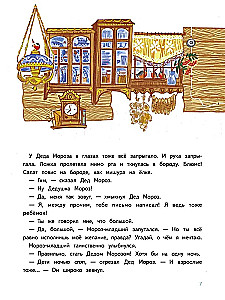 У Деда Мороза в глазах тоже всё запрыгало. И рука запры-
гала. Ложка пролетела мимо рта и ткнулась в бороду. Блямс!
Салат повис на бороде, как мишура на ёлке.
— Гм, — сказал Дед Мороз.
— Ну Дедушка Мороз!
— Да, меня так зовут, — хмыкнул Дед Мороз.
— Я, между прочим, тебе письмо написал! Я ведь тоже
ребёнок!
— Ты же говорил мне, что большой.
— Да, большой, — Мороз-младший запутался. — Но ты всё
равно исполнишь моё желание, правда? Угадай, о чём я мечтаю.
Мороз-младший таинственно улыбнулся.
— Правильно, стать Дедом Морозом! Хотя бы на одну ночь.
— Дети ночью спят, — отрезал Дед Мороз. — И взрослые
тоже... — Он широко зевнул.